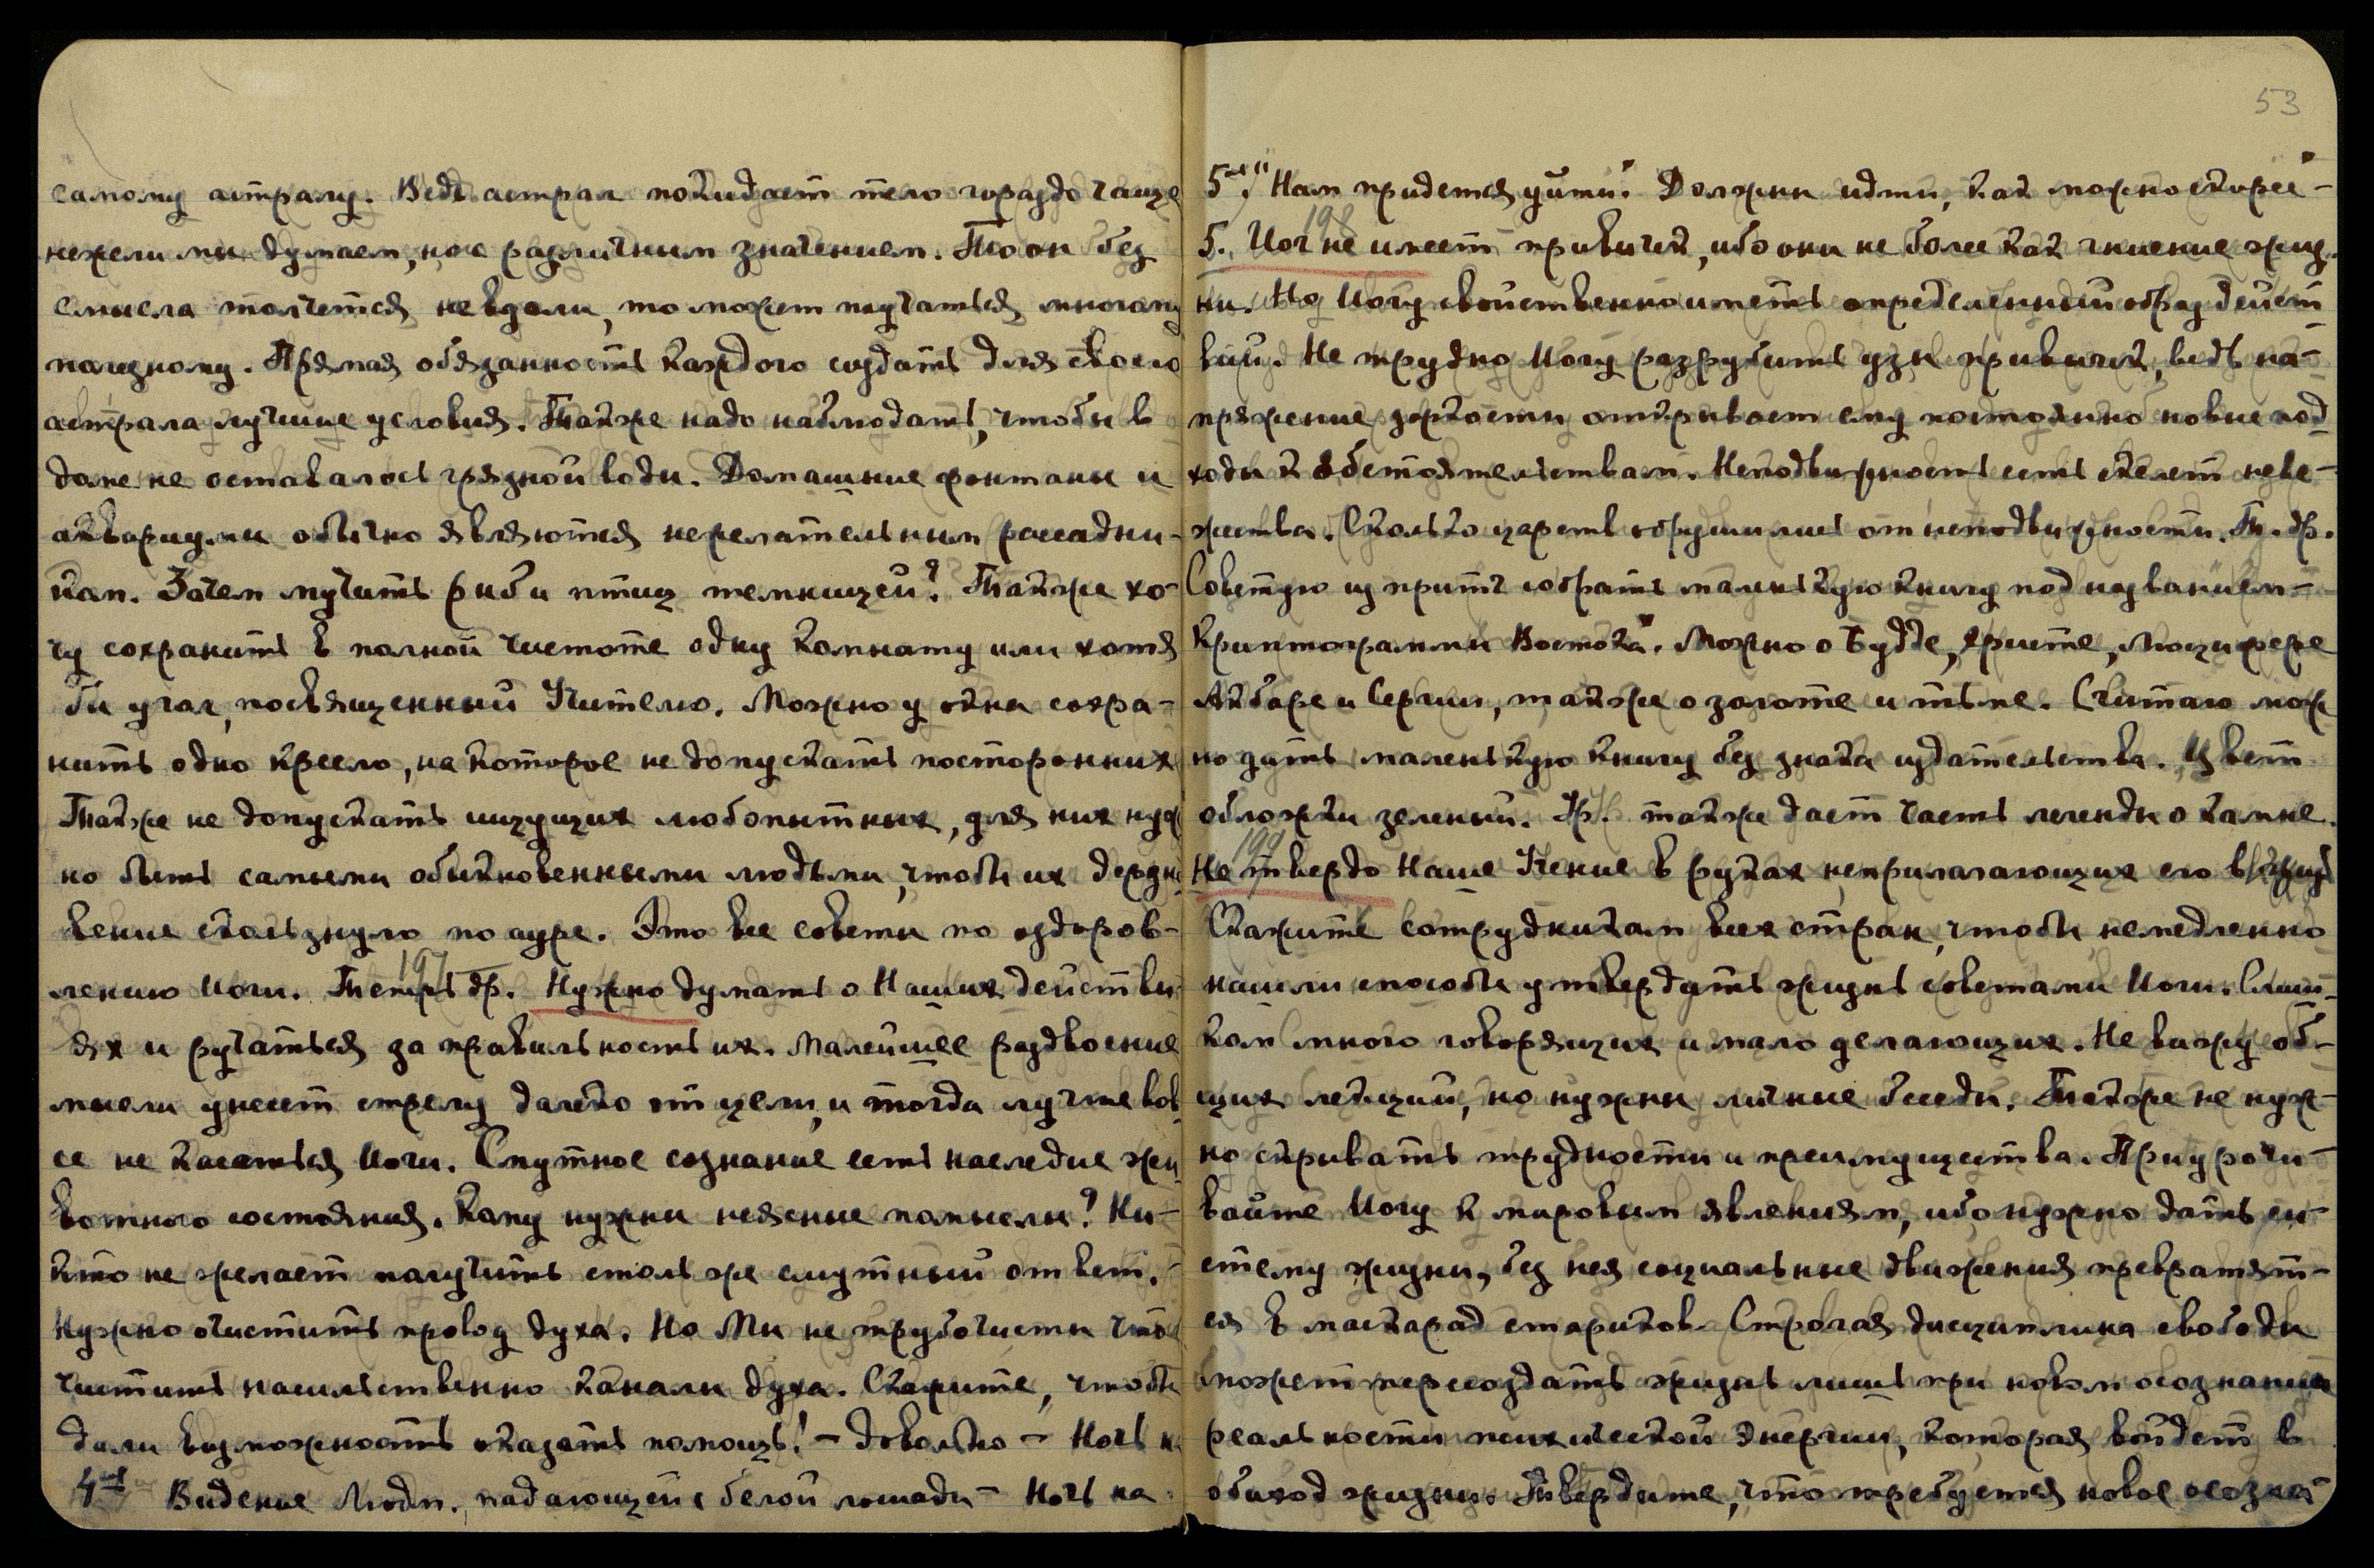 самому астралу. Ведь астрал покидает тело гораздо чаще
нежели мы думаем, но с различным значением. То он без
смысла толчется невдали, то может поучаться многому
полезному. Прямая обязанность каждого создать для своего
астрала лучшие условия. Также надо наблюдать, чтобы в
доме не оставалось грязной воды. Домашние фонтаны и
аквариумы обычно являются нежелательным рассадни-
ком. Зачем мучить рыб и птиц темницей? Также хо-
чу сохранить в полной чистоте одну комнату или хотя
бы угол, посвященный Учителю. Можно у окна сохра-
нить одно кресло, на которое не допускать посторонних
Также не допускать ищущих любопытных, для них нуж
но быть самыми обыкновенными людьми, чтобы их дерзно
вение скользнуло по ауре. Это все советы по оздоров-
лению Йоги. Теперь др. Нужно думать о Наших действи
197
ях и ручаться за правильность их. Малейшее раздвоение
мысли унесет стрелу далеко от цели, и тогда лучше вов
се не касаться Йоги. Смутное сознание есть наследие жи
вотного состояния. Кому нужны неясные помыслы? Ни-
кто не желает получить столь же смутный ответ.-
Нужно очистить провод духа. Но Мы не трубочисты чтоб
чистить насильственно каналы духа. Скажите, чтобы
дали возможность оказать помощь! - довольно - Ночь н
4-ое Видение Людм. падающей с белой лошади - Ночь на
53
5-ое, "Нам придется уйти." Должны идти, как можно скорее" -
198
5. Йог не имеет привычек, ибо они не более как гниение жиз
ни. Но Йогу свойственно иметь определенный образ дейст
вий. Не трудно Йогу разрубить узы привычек, ведь на-
пряжение зоркости открывает ему постоянно новые под
ходы к обстоятельствам. Неподвижность есть скелет неве-
жества. Сколько царств обрушились от неподвижности. Т. др.
Советую из притч собрать маленькую книгу под названием -
Криптограммы Востока". Можно о Будде, Христе, Люцифере
Акбаре и Сергии, также о золоте и тьме. Считаю мож
но дать маленькую книгу без знака издательства. Цвет
обложки зеленый. Ур. также даст часть легенды о камне.
199
Не твердо Наше Учение в руках неприлагающих его в жизнь
Скажите сотрудникам всех стран, чтобы немедленно
нашли способы утвердить жизнь советами Йоги. Слиш-
ком много говорящих и мало делающих. Не вижу об-
щих лекций, но нужны личные беседы. Также не нуж-
но скрывать трудности и преимущества. Приурочи-
вайте Йогу к мировым явлениям, ибо нужно дать си-
стему жизни, без нея социальные движения превратят-
ся в маскарад стариков. Строгая дисциплина свободы
может пересоздать жизнь лишь при новом осознании
реальности психической энергии, которая войдет в
обиход жизни. Твердите, что требуется новое осозна-